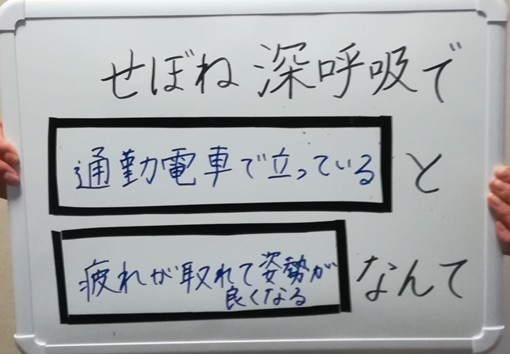 せぼね深呼吸で
通勤電車で立っていると
疲れが取れて姿勢が
良くなるなんて